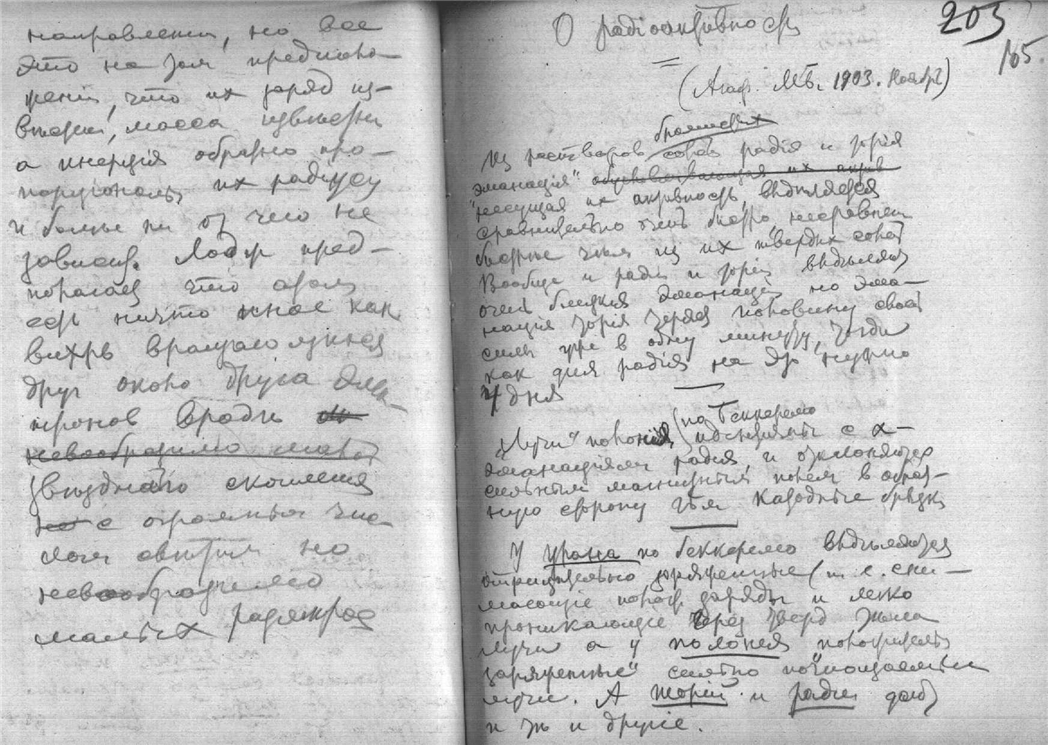 направлении, но все
это на том предполо-
жении, что их заряд из-
вестен, масса известна
а инерція обратно про-
порціональ их радіусу
и больше ни от чего не
зависит. Лодж пред-
полагает что атом
есть ничто иное как
вихрь вращающихся
друг около друга элек-
тронов вроде
невообразимо
звѣзднаго скопленія
с огромным чис-
лом свѣтил но
невообразимо
малых размѣров
203
165.
О радіоактивности
(Ноябрь 1903.)
Из растворов солей радія и торія
эманація"
несущая их активность, выдѣляется
сравнительно очень быстро, несравненно
быстрѣе чѣм из их твердых солей
Вообще и радій и торій выдѣляют
очень близкія эманаціи но эма-
нація торія теряет половину своей
силы уже в одну минуту, тогда
как для радія на это нужно
4 дня
"Лучи" полонія (по Беккерелю
идентичны с α-
эманаціями радія, и отклоняются
сильным магнитным полем в обрат-
ную сторону чѣм катодные
У урана по Беккерелю выдѣляются
отрицательно заряженные (т. е.
положит. заряды и легко
проникающіе через тверд. тѣла
лучи а у полонія положительно
заряженные" сильно поглощаемые
лучи. А торій и радій дают
и тѣ и другіе.